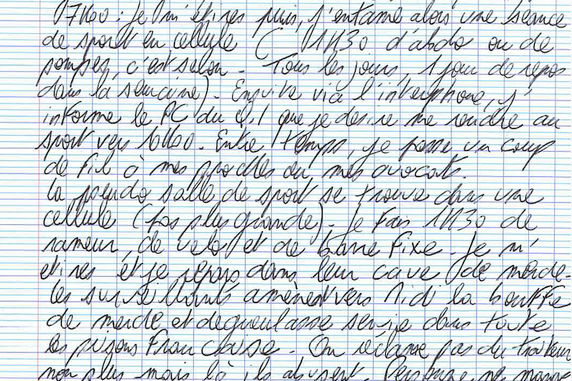 07h00 : Je m'étires puis, j'entame alors une séance
de sport en cellule ( 1H30 d'abdo ou de
pompes, c'est selon - Tous les jours, 1 jour de repos
dans la semaine). Ensuite via l'interphone, j'
informe le PC du QI que je désire me rendre au
sport vers 10h00. Entre temps, je passe un coup
de fil à mes proches ou, mes avocats.
La pseudo salle de sport se trouve dans une
cellule (pas plus grande). Je fais 1H30 de
rameur, de vélo et de barre fixe. Je m'
étires et je repars dans leur cave de merde.
Les surveillants amènent vers midi la bouffe
de merde et dégueulasse servie dans toute
les prisons Françaises. On réclame pas du traiteur
non plus mais là ils abusent. Personne ne mange